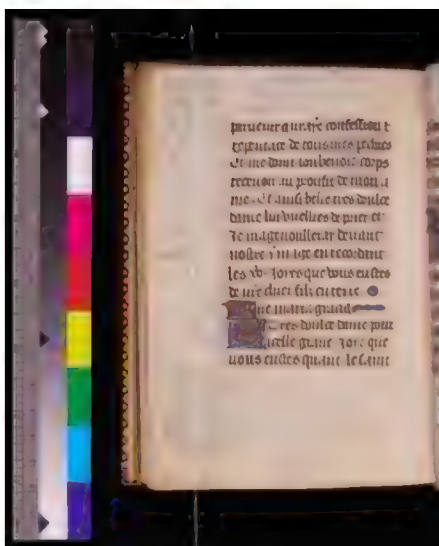 paruenir a vraye confession t
repentãce de tous mes pechies
Et me doint son benoit corps
receuoir au proufit de mon a
me. Et aussi belle tres doulce
dame lui vueillies de prier et
Je magenoulleray deuant
vostre ymage en recordant
les xv. Joyes que vous eustes
de vr̃e chier filz en terre
Aue maria gracia
Tres doulce dame pour
icelle grant Joye que
vous eustes quant le saint